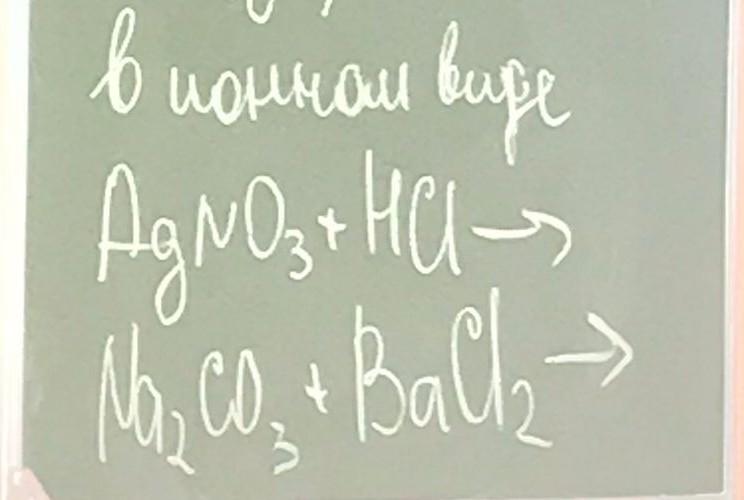 в ионном виде
AgNO₃ + HCl →
Na₂CO₃ + BaCl₂ →